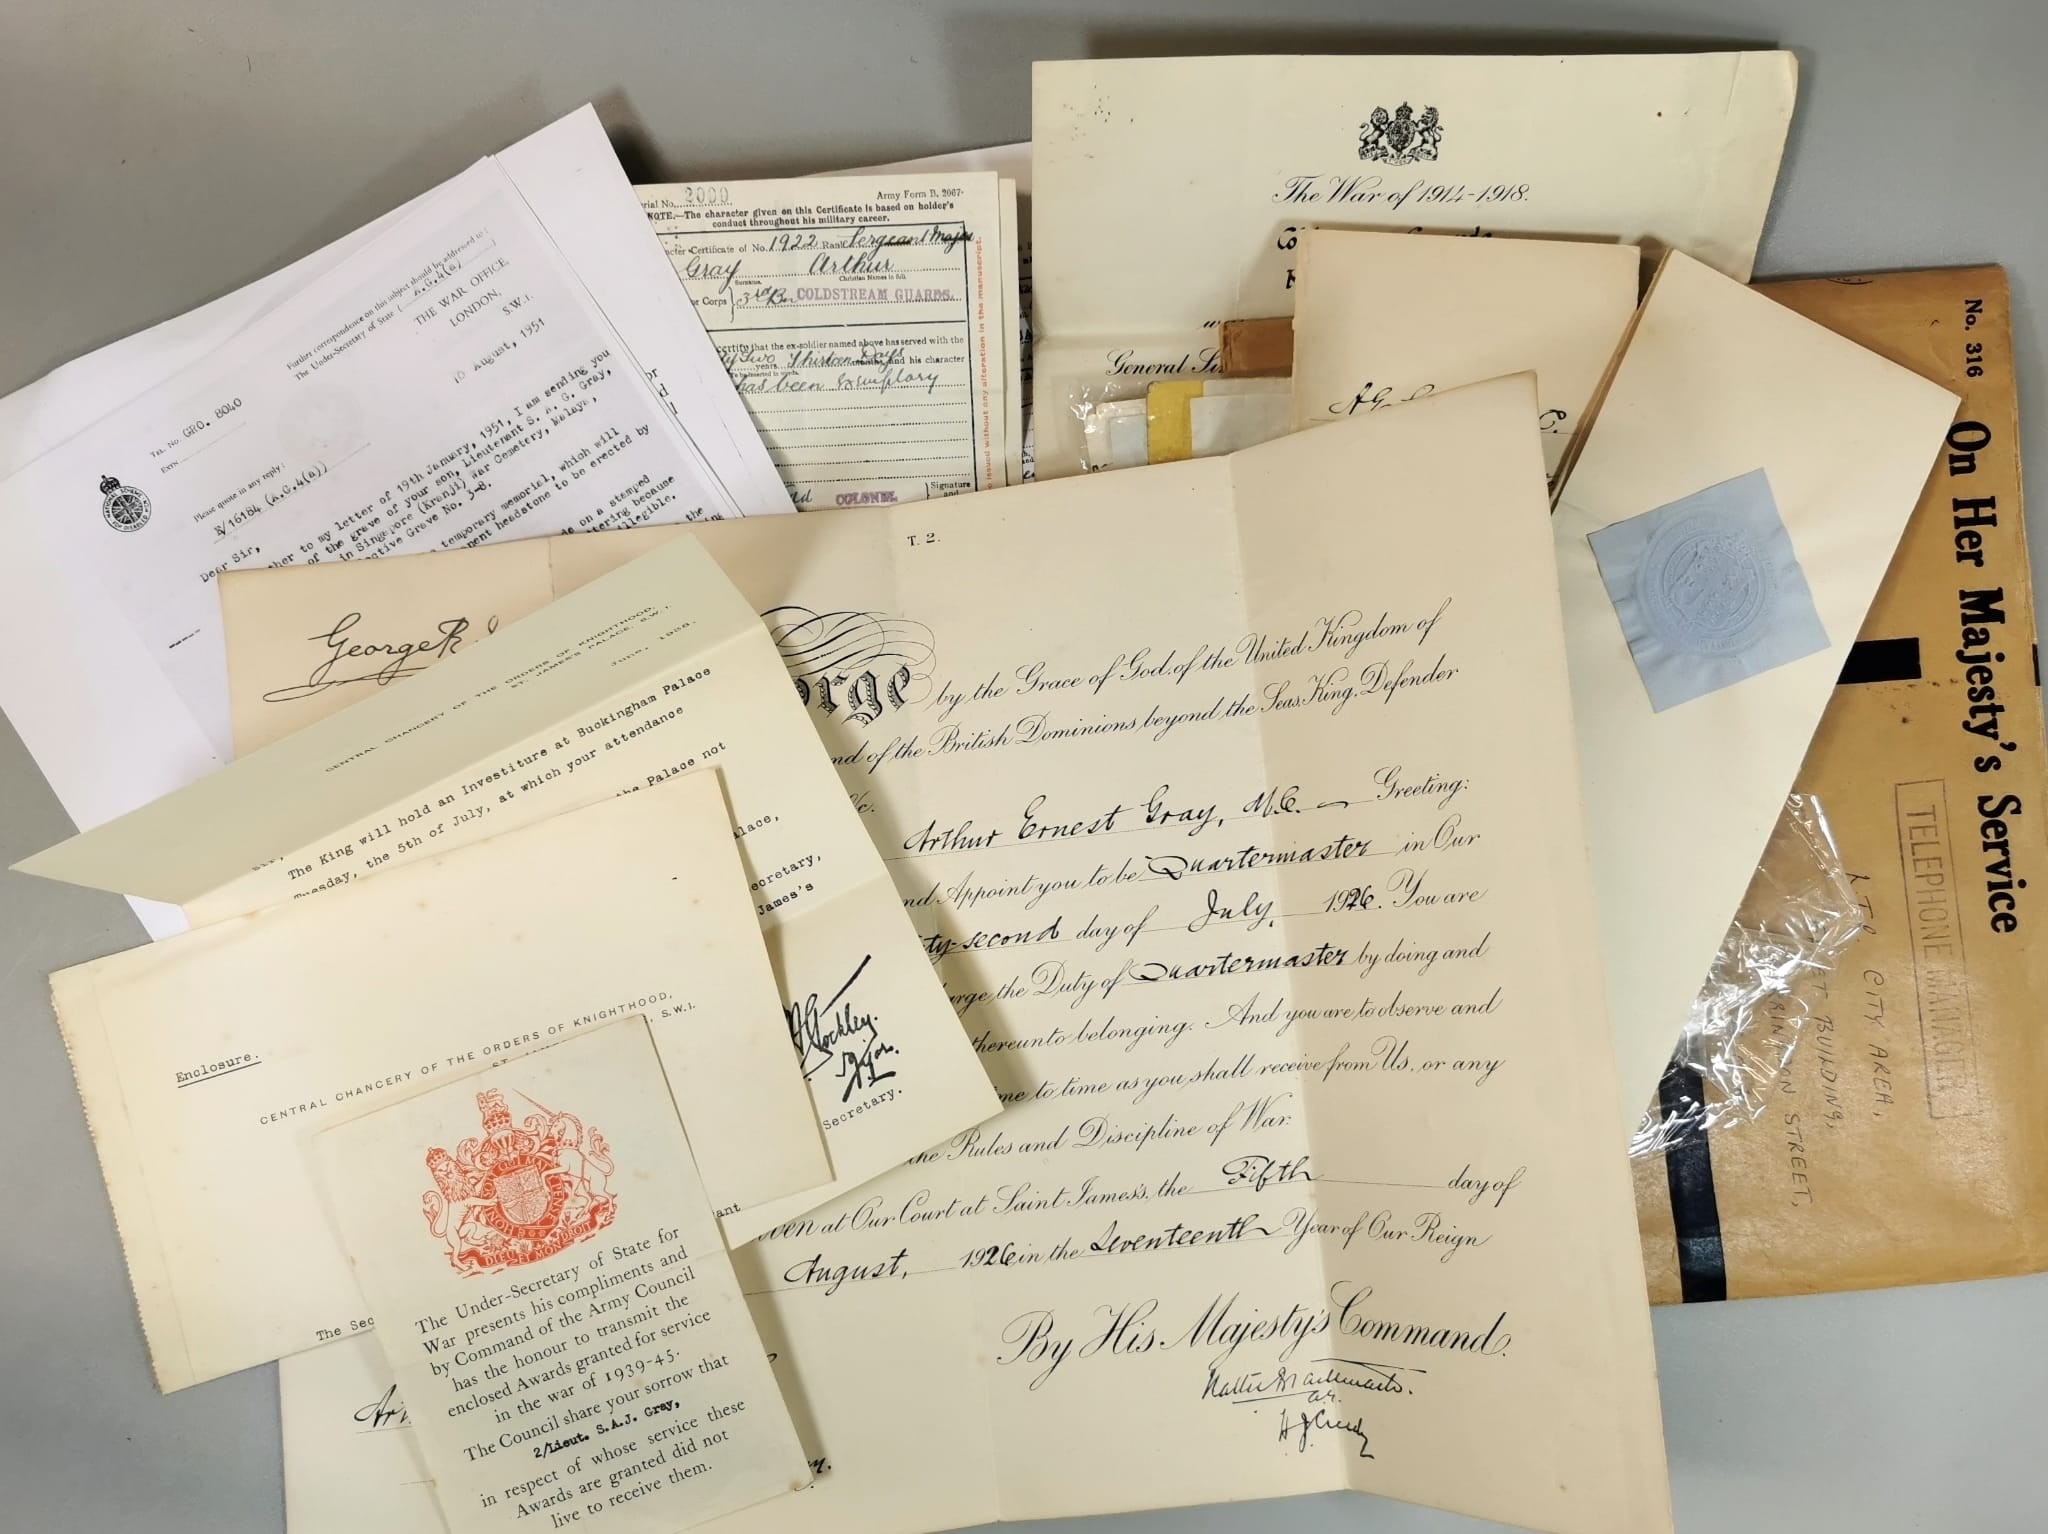 Further correspondence on this subject should be addressed to:
The Under-Secretary of State (A.G.4(a)
THE WAR OFFICE,
LONDON,
S.W.1.
10 August, 1951
TEL. No. GRO. 8040
EXTN
Please quote in any reply:
16184 (A.G.4(a))
Dear Sir,
ther to my letter of 19th January, 1951, I am sending you
of the grave of your son, Lieutenant S. A. G. Gray,
in Singapore (Kranji) War Cemetery, Malaya,
ective Grave No. 3-8.
temporary memorial, which will
nent headstone to be erected by
de on a stamped
tering because
illegible.
the
rial No. 2000
Army Form B. 2067.
NOTE.—The character given on this Certificate is based on holder's
conduct throughout his military career.
cter Certificate of No. 1922 Rank Sergeant Major
Gray Arthur
Surname. Christian Names in full.
or Corps 3rd Bn COLDSTREAM GUARDS.
certify that the ex-soldier named above has served with the
ty Two years Thirteen Days and his character
has been exemplary
COLONEL
Signature
and
issued without any alteration in the manuscript.
The War of 1914-1918.
General Sir
On Her Majesty's Service
No. 316
TELEPHONE MANAGER
L.T.O. CITY AREA,
ET BUILDING,
RINGDON STREET,
George R.
CENTRAL CHANCERY OF THE ORDERS OF KNIGHTHOOD,
ST. JAMES'S PALACE, S.W.1.
Sir,
The King will hold an Investiture at Buckingham Palace
Tuesday, the 5th of July, at which your attendance
the Palace not
alace,
ecretary,
James's
Major.
Secretary.
T. 2.
orge by the Grace of God, of the United Kingdom of
nd of the British Dominions beyond the Seas, King, Defender
&c.
Arthur Ernest Gray, M.C. Greeting:
nd Appoint you to be Quartermaster in Our
ty-second day of July, 1926. You are
arge the Duty of Quartermaster by doing and
thereunto belonging. And you are to observe and
me to time as you shall receive from Us, or any
the Rules and Discipline of War.
ven at Our Court at Saint James's, the Fifth day of
August, 1926 in the Seventeenth Year of Our Reign
By His Majesty's Command.
Enclosure.
CENTRAL CHANCERY OF THE ORDERS OF KNIGHTHOOD,
S.W.1.
The Sec
ant
HONI SOIT QUI MAL Y PENSE
DIEU ET MON DROIT
The Under-Secretary of State for
War presents his compliments and
by Command of the Army Council
has the honour to transmit the
enclosed Awards granted for service
in the war of 1939-45.
The Council share your sorrow that
2/Lieut. S.A.J. Gray,
in respect of whose service these
Awards are granted did not
live to receive them.